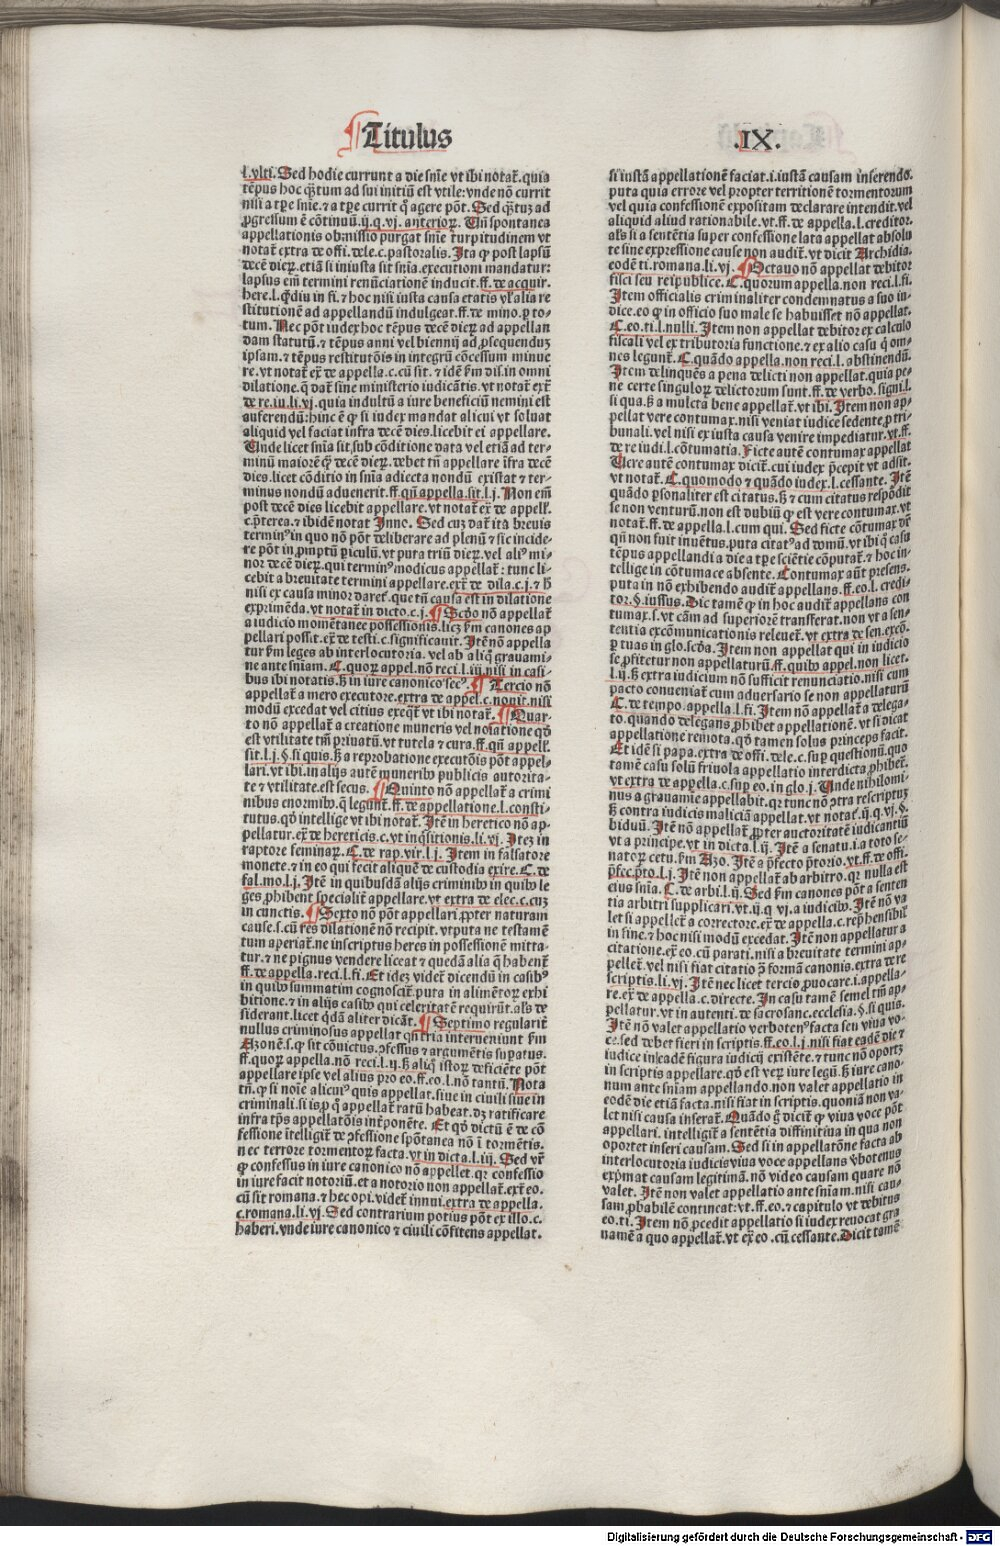 Titulus
.IX.
l.vlti. Sed hodie currunt a die snīe vt ibi notat᷑. quia
tēpus hoc q̄tum ad sui initiū est vtile: vnde nōn currit
nisi a tꝑe snīe. ⁊ a tꝑe currit q̄ agere pōt. Sed q̄tuꝫ ad
ꝓgressum ē cōtinuū. ij. q. vj. anterioꝝ. Tn̄ spontanea
appellationis obmissio purgat snīe turpitudinem vt
notat᷑ extra de offi. dele. c. pastoralis. Ita ꝙ post lapsū
decē dieꝝ. etiā si iniusta sit snīa. executioni mandatur:
lapsus em̄ termini renūciationē inducit. ff. de acquir.
here. l. q̄diu in fi. ⁊ hoc nisi iusta causa etatis vel alia re
stitutionē ad appellandū indulgear. ff. de mino. ꝑ to-
tum. Nec pōt iudex hoc tēpus decē dieꝝ ad appellan
dam statutū. ⁊ tēpus anni vel biennij ad ꝓsequenduꝫ
ipsam. ⁊ tēpus restitutōis in integrū cōcessum minue
re. vt notat᷑ ex̄ de appella. c. cū sit. ⁊ idē ẜm dis. in omni
dilatione. q̄ dat᷑ sine ministerio iudicātis. vt notat᷑ ext᷑
de re. iu. li. vj. quia indultū a iure beneficiū nemini est
auferendū: hinc ē ꝙ si iudex mandat alicui vt soluat
aliquid vel faciat infra decē dies. licebit ei appellare.
Unde licet snīa sit sub cōditione data vel etiā ad ter-
minū maiorē q̄ decē dieꝝ. debet tn̄ appellare īfra decē
dies. licet cōditio in snīa adiecta nondū existat ⁊ ter-
minus nondū aduenerit. ff. qn̄ appella. sit. l. j. Non em̄
post decē dies licebit appellare. vt notat᷑ ex̄ de appell᷑.
c. p̄terea. ⁊ ibidē notat Inno. Sed cuꝫ dat᷑ ita breuis
terminꝰ in quo nō pōt deliberare ad plenū ⁊ sic incide-
re pōt in ꝓmptū ꝑiculū. vt puta triū dieꝝ. vel aliꝰ mi-
nor decē dieꝝ. qui terminꝰ modicus appellat᷑: tunc li-
cebit a breuitate termini appellare. ext᷑ de dila. c. j. ⁊ h̄
nisi ex causa minor daret᷑. que tn̄ causa est in dilatione
exprimēda. vt notat᷑ in dicto. c. j. ¶ Scdo nō appellat᷑
a iudicio momētanee possessionis. licꝫ ẜm canones ap
pellari possit. ex̄ de testi. c. significauit. Itē nō appella
tur ẜm leges ab interlocutoria. vel ab aliq̄ grauami-
ne ante snīam. C. quoꝝ appel. nō reci. l. iij. nisi in casi-
bus ibi notatis. ꝫ in iure canonico secꝰ. ¶ Tercio nō
appellat᷑ a mero executore. extra de appel. c. nouit. nisi
modū excedat vel citius exeqr̄t vt ibi notat᷑. ¶ Quar-
to nō appellat᷑ a creatione muneris vel noīatione qđ
est vtilitate tm̄ priuatū. vt tutela ⁊ cura. ff. qn̄ appell᷑.
sit. l. j. §. si quis. ꝫ a reprobatione executōis pōt appel-
lari. vt ibi. in alijs autē muneribꝰ publicis autorita-
te ⁊ vtilitate. est secus. ¶ Quinto nō appellat᷑ a crimi
nibus enormibꝰ. q̄ legunt᷑. ff. de appellatione. l. consti-
tutus. qđ intellige vt ibi notat᷑. Itē in heretico nō ap-
pellatur. ex̄ de hereticis. c. vt inq̄sitionis. li. vj. Iteꝫ in
raptore feminaꝝ. C. de rap. vir. l. j. Item in falsatore
monete. ⁊ in eo qui fecit aliquē de custodia exire. C. de
fal. mo. l. j. Itē in quibusdā alijs criminibꝰ in quibꝰ le
ges ꝓhibent specialit᷑ appellare. vt extra de elec. c. cuꝫ
in cunctis. ¶ Sexto nō pōt appellari ꝓpter naturam
cause. s. cū res dilationē nō recipit. vt puta ne testamē
tum aperiat᷑. ne inscriptus heres in possessionē mitta-
tur. ⁊ ne pignus vendere liceat ⁊ quedā alia q̄ habent᷑
ff. de appella. reci. l. fi. Et ideꝫ videt᷑ dicendū in casibꝰ
in quibꝰ summatim cognoscit᷑. puta in alimētoꝝ exhi
bitione. ⁊ in alijs casibꝰ qui celeritatē requirūt. als de
siderant. licet q̄dā aliter dicāt. ¶ Septimo regularit᷑
nullus criminosus appellat qn̄ tria interueniunt ẜm
Azonē. s. ꝙ sit cōuictus. ꝯfessus ⁊ argumētis supatus.
ff. quoꝝ appella. nō reci. l. ij. ꝫ aliq̄ istoꝝ deficiēte pōt
appellare ipse vel alius pro eo. ff. eo. l. nō tantū. Nota
tn̄. ꝙ si noīe alicuiꝰ quis appellat. siue in ciuili siue in
criminali. si is ꝓ q̄ appellat᷑ ratū habeat. dꝫ ratificare
infra tp̄s appellatōis int᷑ponēte. Et qđ dictū ē de cō
fessione ītelligit᷑ de ꝯfessione spōtanea nō ī tormētis.
nec terrore tormentoꝝ facta. vt in dicta. l. iij. Sed vr̄
ꝙ confessus in iure canonico nō appellet. qr confessio
in iure facit notoriū. et a notorio non appellat᷑. ext᷑ eo.
cū sit romana. ⁊ hec opi. videt᷑ innui. extra de appella.
c. romana. li. vj. Sed contrarium potius pōt ex illo. c.
haberi. vnde iure canonico ⁊ ciuili cōfitens appellat.
si iustā appellationē faciat. i. iustā causam inserendo.
puta quia errore vel propter territionē tormentorum
vel quia confessionē expositam declarare intendit. vel
aliquid aliud rationabile. vt. ff. de appella. l. creditor.
als si a sentētia super confessione lata appellat absolu
te sine expressione cause non audit᷑. vt dicit Archidia.
eodē ti. romana. li. vj. ¶ Octauo nō appellat debitor
fisci seu reipublice. C. quorum appella. non reci. l. fi.
Item officialis criminaliter condemnatus a suo iu-
dice. eo ꝙ in officio suo male se habuisset nō appellat.
C. eo. ti. l. nulli. Item non appellat debitor ex calculo
fiscali vel ex tributoria functione. ⁊ ex alio casu q̄ om-
nes legunt᷑. C. quādo appella. non reci. l. abstinendū.
Item delinquēs a pena delicti non appellat. quia pe-
ne certe singuloꝝ delictorum sunt. ff. de verbo. signi. l.
si qua. ꝫ a mulcta bene appellat᷑. vt ibi. Item non ap-
pellat vere contumax. nisi veniat iudice sedente ꝓ tri-
bunali. vel nisi ex iusta causa venire impediatur. vt. ff.
de re iudi. l. cōtumatia. Ficte autē contumax appellat
Uere autem contumax dicit᷑. cui iudex p̄cepit vt adsit.
vt notat᷑. C. quomodo ⁊ quādo iudex. l. cessante. Itē
quādo ꝑsonaliter est citatus. ꝫ ⁊ cum citatus respōdit
se non venturū. non est dubiū ꝙ est vere contumax. vt
notat᷑. ff. de appella. l. cum qui. Sed ficte cōtumax dr̄
qn̄ non fuit inuētus. puta citatꝰ ad domū. vt ibi q̄ casu
tēpus appellandi a die a tꝑe sciētie cōputat᷑. ⁊ hoc in-
tellige in cōtumace absente. Contumax aut̄ presens.
puta in nō exhibendo audit᷑ appellans. ff. eo. l. credi-
tor. §. iussus. Dic tamē ꝙ in hoc audit᷑ appellans con
tumax. s. vt cām ad superiorē transferat. non vt a sen-
tentia excōmunicationis releuet᷑. vt extra de sen. excō.
ꝑ tuas in glo. scđa. Item non appellat qui in iudicio
se ꝓfitetur non appellaturū. ff. quibꝰ appel. non licet.
l. ij. ꝫ extra iudicium nō sufficit renunciatio. nisi cum
pacto conueniat᷑ cum aduersario se non appellaturū
C. de tempo. appella. l. fi. Item nō appellat᷑ a delega-
to. quando delegans ꝓhibet appellationē. vt si dicat
appellatione remota. qđ tamen solus princeps facit.
Et idē si papa. extra de offi. dele. c. suꝑ questionū. quo
tamē casu solū friuola appellatio interdicta ꝓhibet᷑.
vt extra de appella. c. suꝑ eo. in glo. j. Unde nihilomi-
nus a grauamie appellabit. qr tunc nō ꝯtra rescriptuꝫ
ꝫ contra iudicis maliciā appellat. vt notat᷑. ij. q. vj. §.
biduū. Itē nō appellat᷑ ꝓpter auctoritatē iudicantiū
vt a principe. vt in dicta. l. ij. Itē a senatu. i. a toto se-
natoꝝ cetu. ẜm Azo. Itē a p̄fecto p̄torio. vt. ff. de offi.
p̄fec. p̄to. l. j. Itē non appellat᷑ ab arbitro. qr nulla est
eius snīa. C. de arbi. l. ij. Sed ẜm canones pōt a senten
tia arbitri supplicari. vt. ij. q. vj. a iudicibꝰ. Itē nō va
let si appellet᷑ a correctore. ex̄ de appella. c. rep̄hensibil᷑
in fine. ⁊ hoc nisi modū excedat. Itē non appellatur a
citatione. ex̄. eo. cū parati. nisi a breuitate termini ap-
pellet᷑. vel nisi fiat citatio ꝯ̄ formā canonis. extra de re
scriptis. li. vj. Itē nec licet tercio ꝓuocare. i. appella-
re. ex̄ de appella. c. directe. In casu tamē semel tm̄ ap-
pellatur. vt in autenti. de sacrosanc. ecclesia. §. si quis.
Itē nō valet appellatio verbotenꝰ facta seu viua vo-
ce. sed debet fieri in scriptis. ff. eo. l. j. nisi fiat eadē die ⁊
iudice in eadē figura iudicij existēte. ⁊ tunc nō oportꝫ
in scriptis appellare. qđ est veꝝ iure legū. ꝫ iure cano-
num ante snīam appellando. non valet appellatio in
eodē die etiā facta. nisi fiat in scriptis. quoniā non va-
let nisi causa inserat᷑. Quādo g̊ dicit᷑ ꝙ viua voce pōt
appellari. intelligit᷑ a sentētia diffinitiua in qua non
oportet inseri causam. Sed si in appellatōne facta ab
interlocutoria iudicis viua voce appellans v̄botenus
exp̄mat causam legitimā. nō video causam quare nō
valet. Itē non valet appellatio ante snīam. nisi cau-
sam ꝓbabilē contineat: vt. ff. eo. ⁊ capitulo vt debitus
eo. ti. Item nō ꝓcedit appellatio si iudex reuocat gra
namē a quo appellat᷑. vt ex̄ eo. cū cessante. Dicit tamē
Digitalisierung gefördert durch die Deutsche Forschungsgemeinschaft - DFG